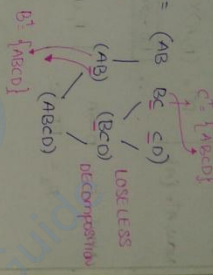 = (AB BC CD)
C⁺ = {ABCD}
(AB) (BCD)
B⁺ {ABCD}
(ABCD)
LOSELESS
DECOMPOSITION